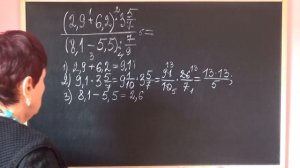 (2,9 + 6,2) · 3 5/7
(8,1 − 5,5) : 7/9 =
1) 2,9 + 6,2 = 9,1;
2) 9,1 · 3 5/7 = 91/10 · 3 5/7 = 91/10 · 26/7 = 13·13/5;
3) 8,1 − 5,5 = 2,6